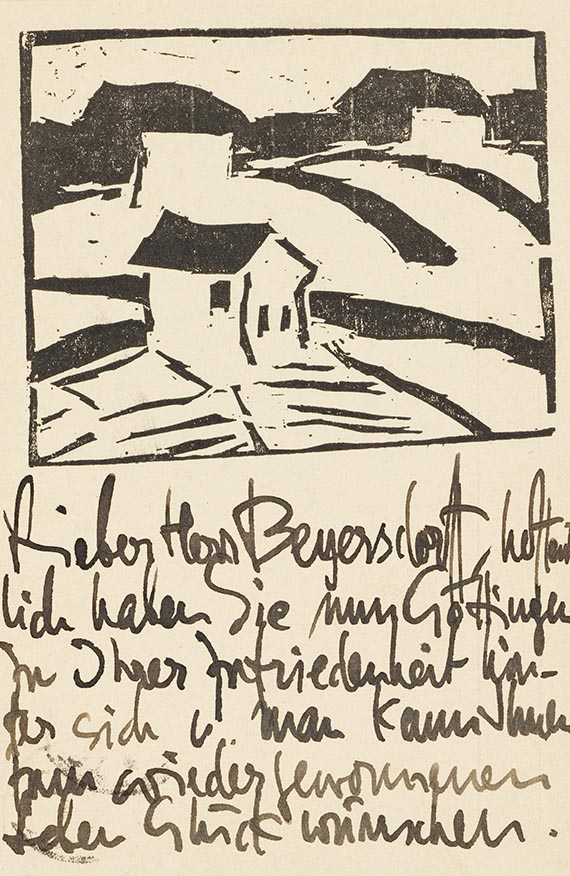 Lieber Herr Beyersdorff, hoffent
lich haben Sie nun Göttingen
zu Ihrer Zufriedenheit hin-
ter sich u. man kann Ihnen
zum wiedergewonnenen
Leben Glück wünschen.